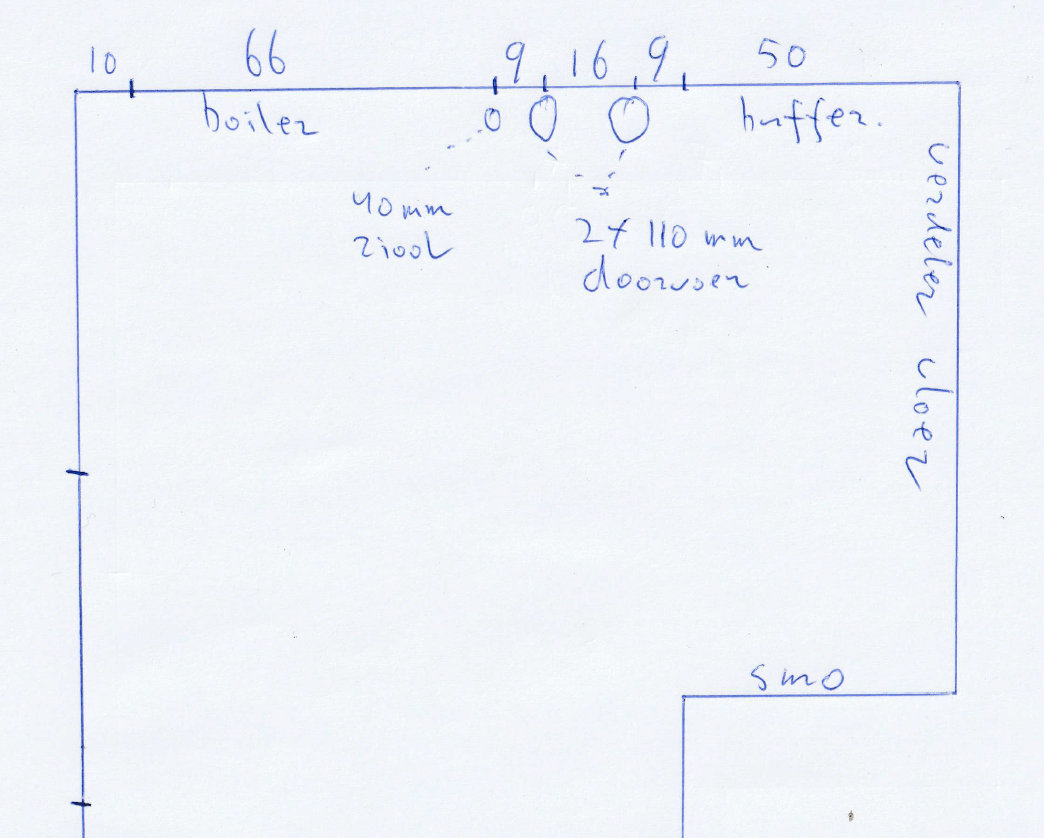 10 66 9 16 9 50
boiler buffer.
40 mm
riool
2x 110 mm
doorvoer
verdeler vloer